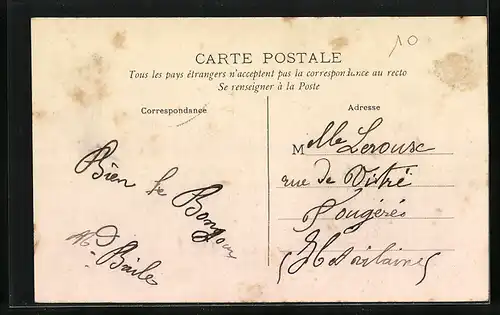 10
CARTE POSTALE
Tous les pays étrangers n'acceptent pas la correspondance au recto
Se renseigner à la Poste
Correspondance
Adresse
Bien le Bonjour
Melle Lerouse
rue de Vitré
Fougères